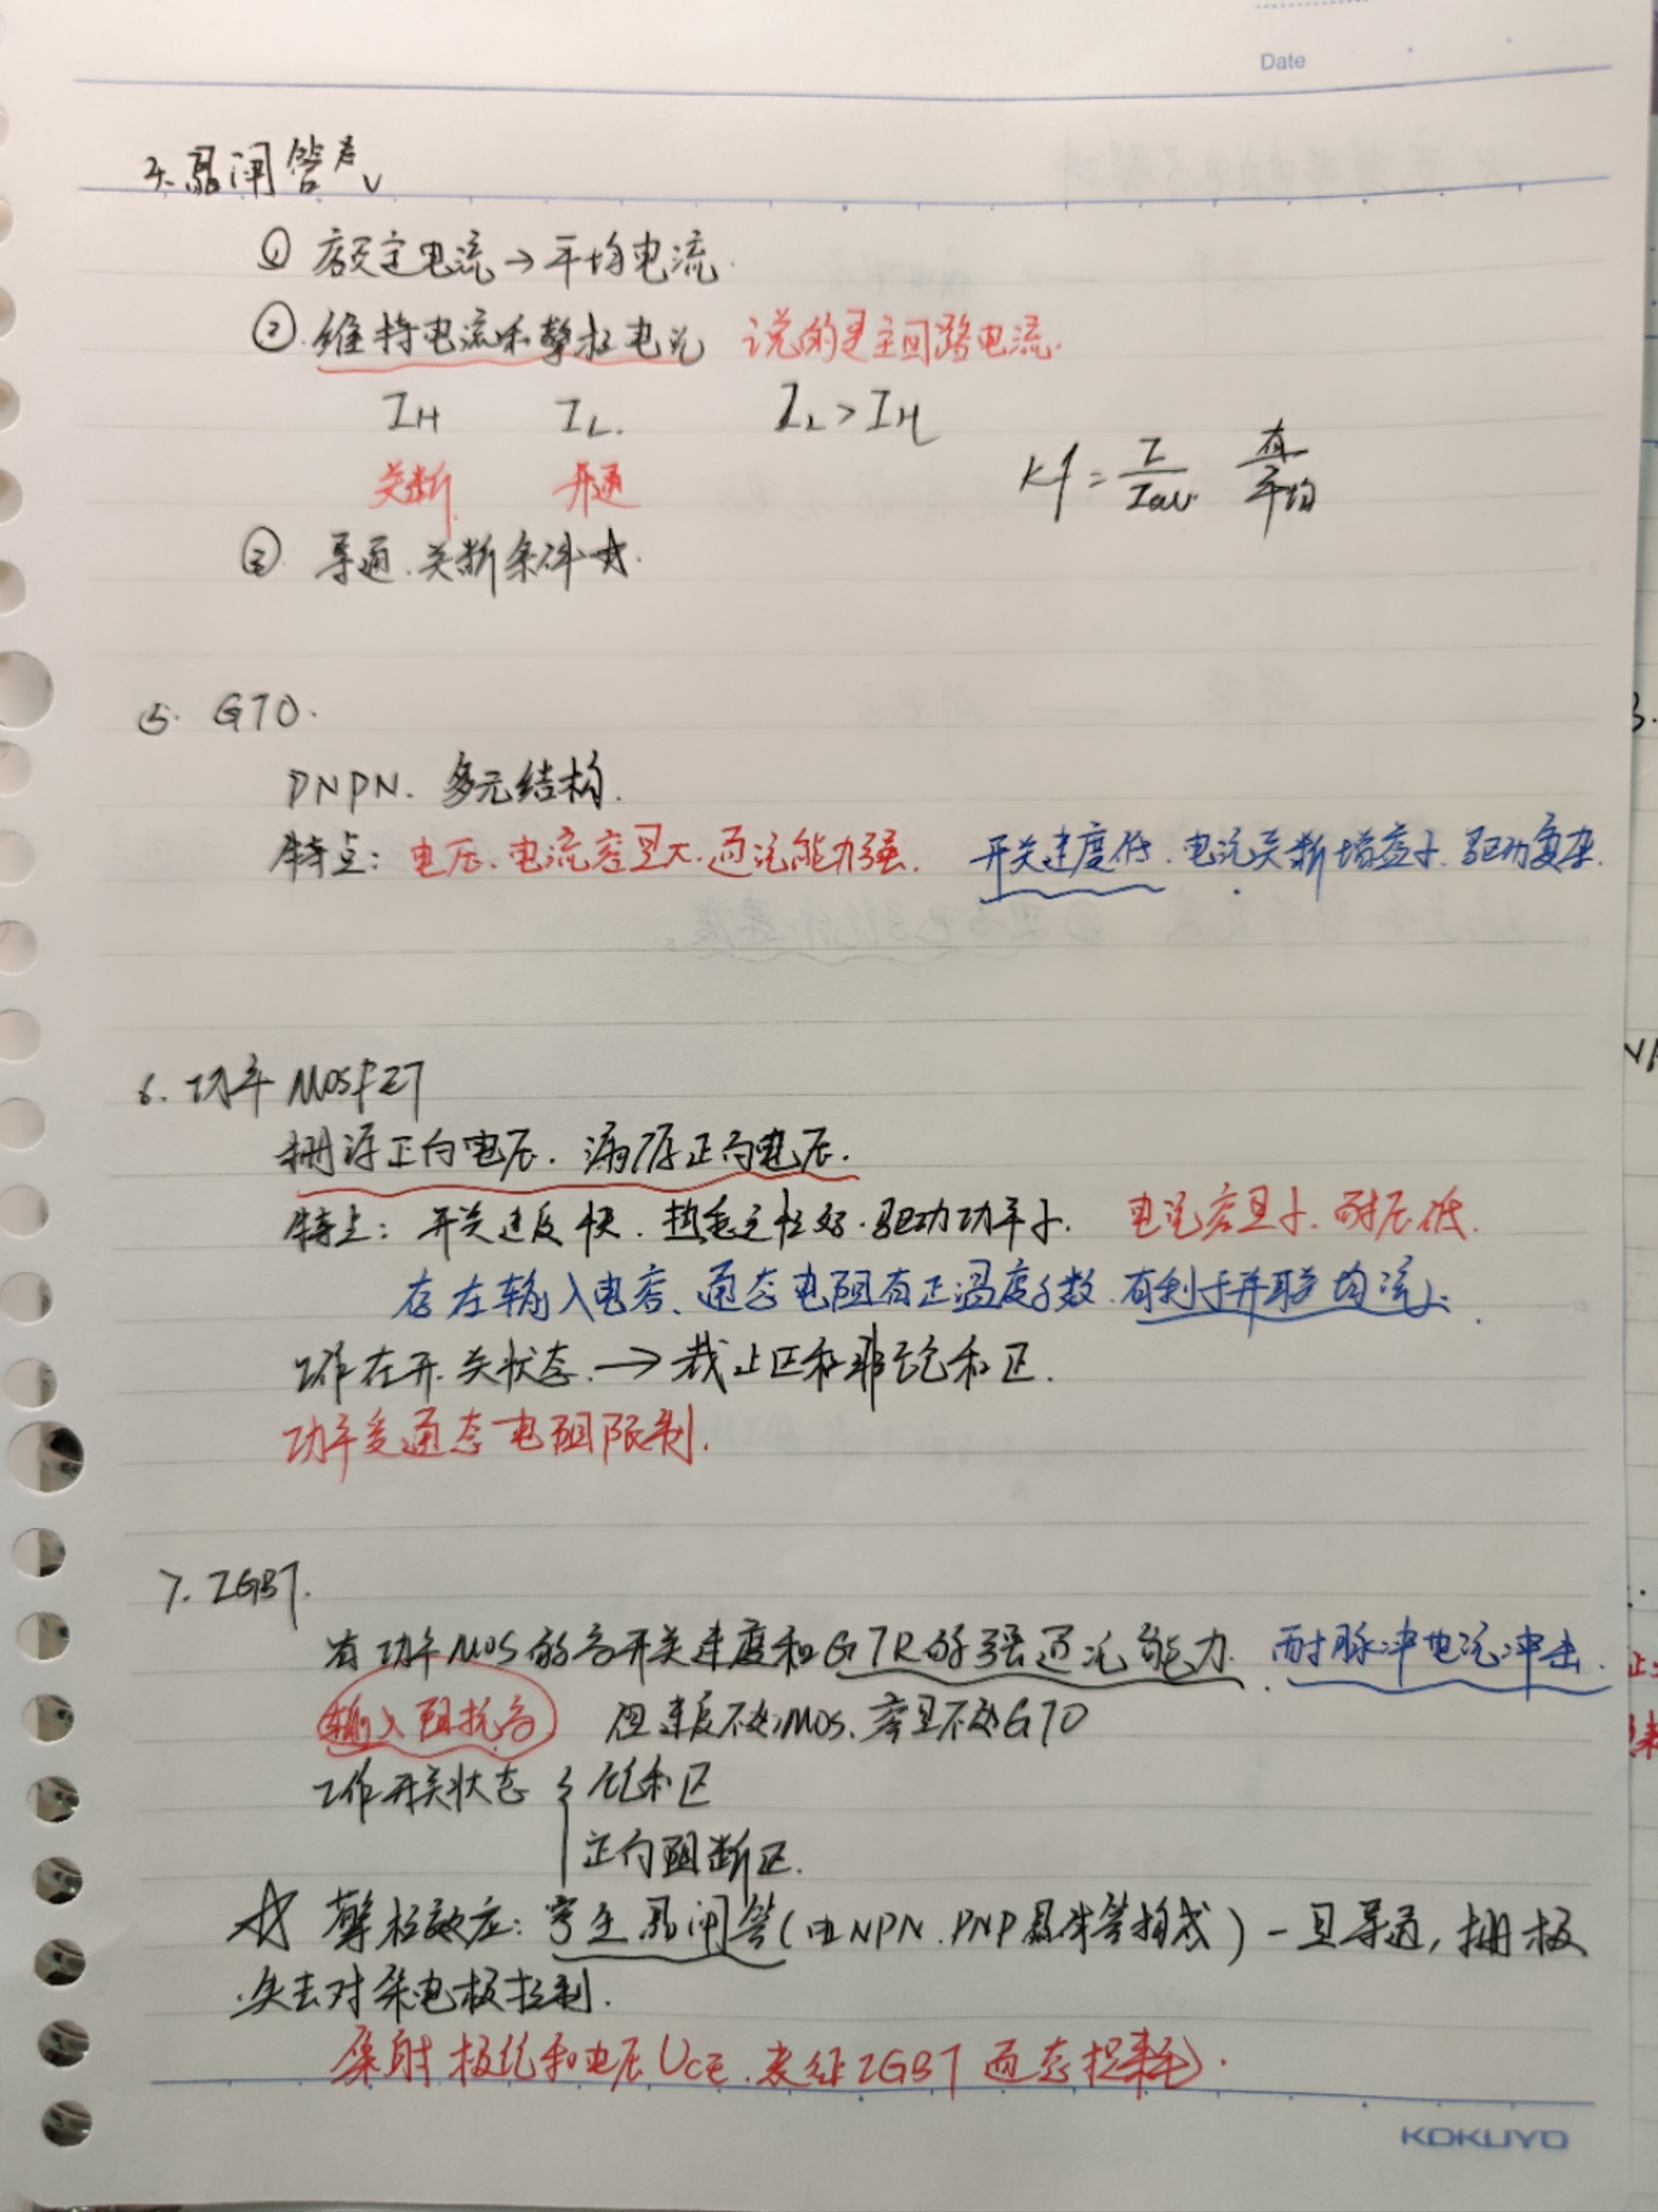 Date
晶闸管
① 额定电流→平均电流.
② 维持电流和擎柱电流 说的是主回路电流.
IH IL. IL>IH
Kf = I/Iav. 有/平均
关断 开通
③ 导通.关断条件☆.
5. GTO.
PNPN. 多元结构.
特点: 电压、电流容量大.通流能力强. 开关速度低.电流关断增益小.驱动复杂.
6. 功率 MOSFET
栅源正向电压. 漏源正向电压.
特点: 开关速度快.热稳定性好.驱动功率小. 电流容量小.耐压低.
存在输入电容、通态电阻有正温度系数.有利于并联均流.
工作在开.关状态.→截止区和非饱和区.
功率受通态电阻限制.
7. IGBT.
有功率MOS的高开关速度和GTR的强通流能力. 耐脉冲电流冲击.
输入阻抗高 但速度不如MOS、容量不如GTO
工作开关状态 { 饱和区
正向阻断区.
☆ 擎柱效应: 寄生晶闸管(由NPN.PNP晶体管构成)一旦导通, 栅极
失去对集电极控制.
集射极饱和电压UCE.表征IGBT通态损耗.
KOKUYO